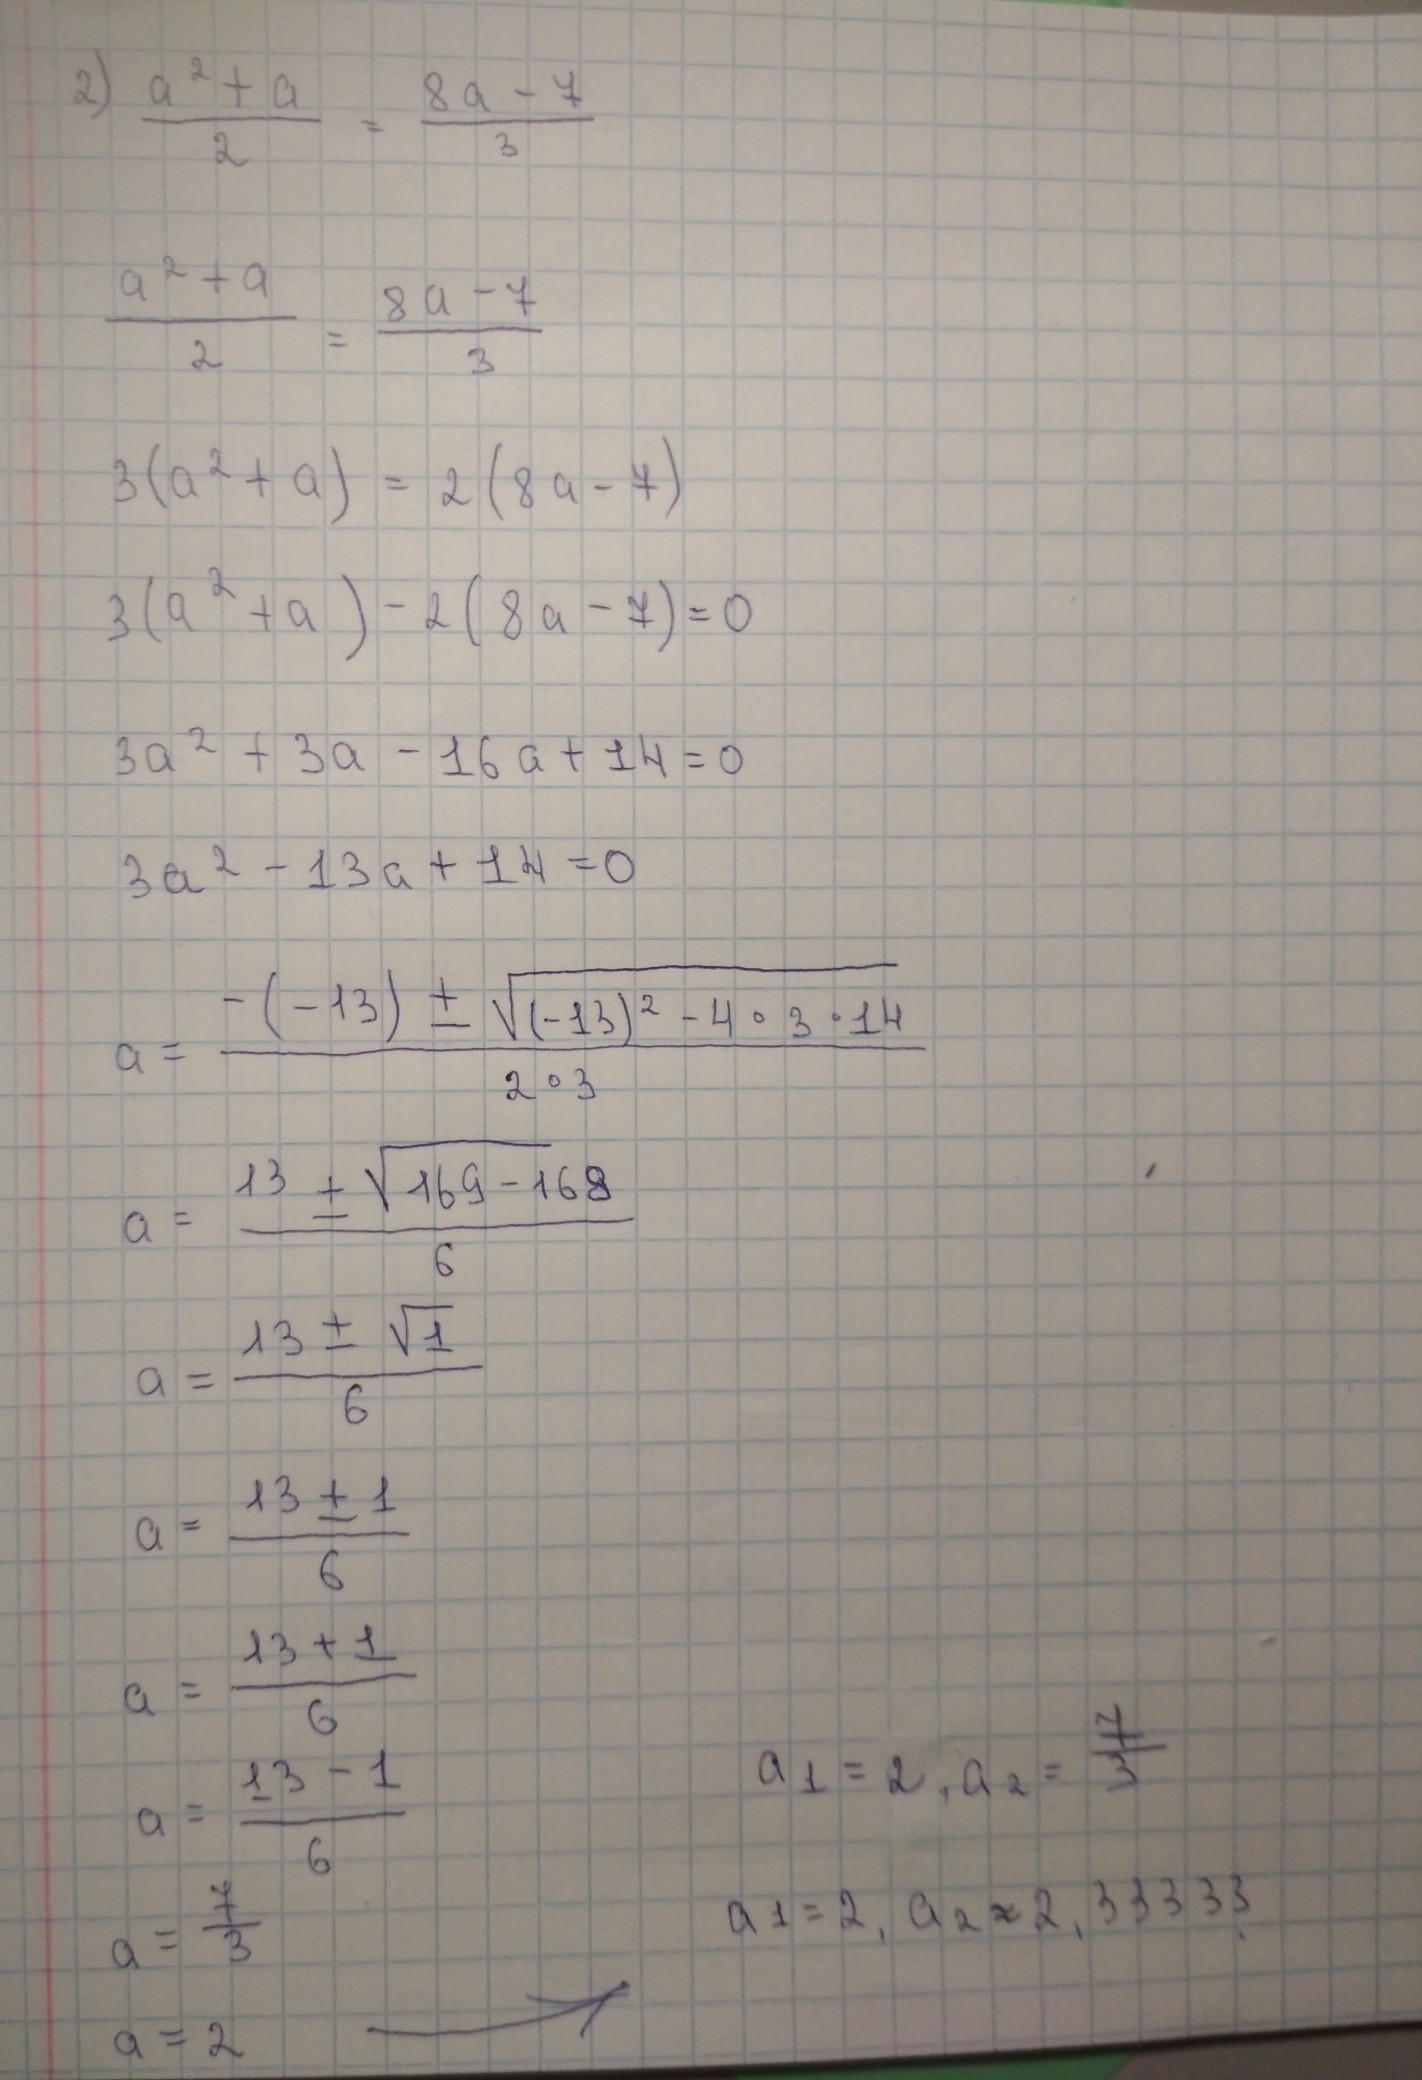 2) a² + a / 2 = 8a - 7 / 3
a² + a / 2 = 8a - 7 / 3
3(a² + a) = 2(8a - 7)
3(a² + a) - 2(8a - 7) = 0
3a² + 3a - 16a + 14 = 0
3a² - 13a + 14 = 0
a = -(-13) ± √(-13)² - 4 · 3 · 14 / 2 · 3
a = 13 ± √169 - 168 / 6
a = 13 ± √1 / 6
a = 13 ± 1 / 6
a = 13 + 1 / 6
a = 13 - 1 / 6
a = 7/3
a = 2
a1 = 2, a2 = 7/3
a1 = 2, a2 ≈ 2,33333